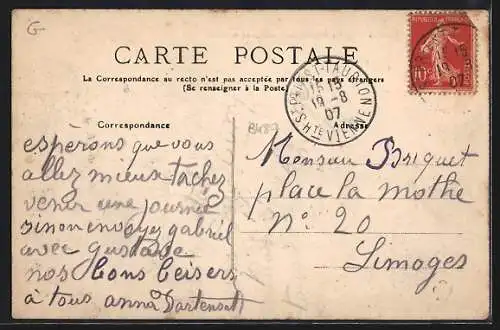 G
CARTE POSTALE
La Correspondance au recto n'est pas acceptée par tous les pays étrangers
(Se renseigner à la Poste)
REPUBLIQUE FRANÇAISE
10
07
TAURION
15 15
19-8
07
HTE VIENNE
Correspondance
Adresse
espèrons que vous
allez mieux tachez
venir une journée
sinon envoyez gabriel
avec gustave
nos bons beisers
à tous anna
Monsieur Briquet
place la mothe
n° 20
Limoges